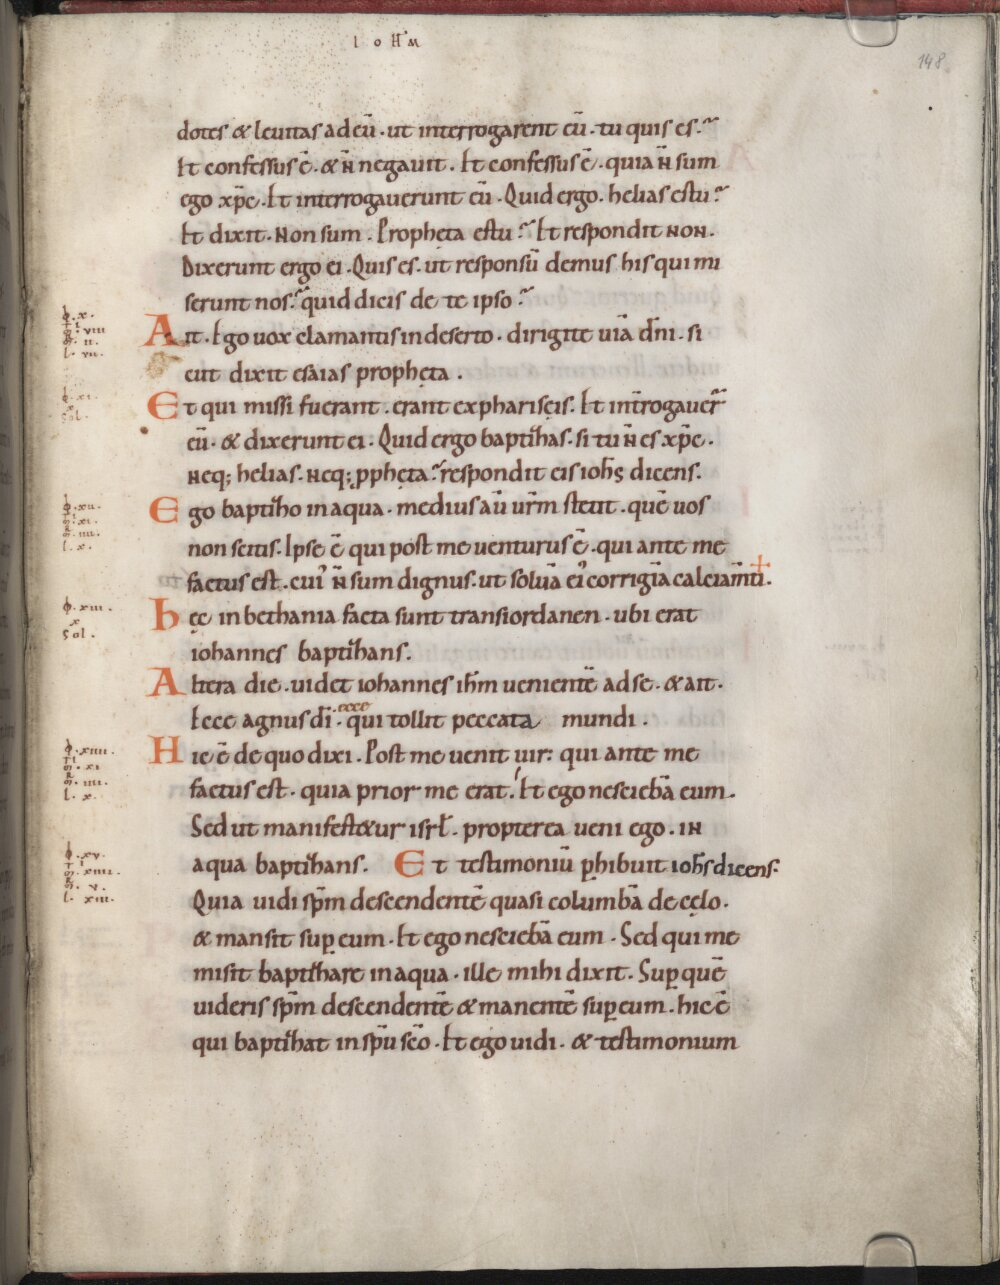 I O H M
148
dotes & leuitas ad eū · ut interrogarent eū · tu quis es ·
Et confessus ē · & n̄ negauit . Et confessus ē · quia n̄ sum
ego xp̄c · Et interrogauerunt eū · Quid ergo · helias es tu ?
Et dixit · Non sum . Propheta es tu ? Et respondit NON ·
Dixerunt ergo ei · Quis es · ut responsū demus his qui mi
serunt nos · quid dicis de te ipso ?
Ait · Ego uox clamantis in deserto · dirigite uiā dn̄i · si
cut dixit esaias propheta .
Et qui missi fuerant · erant ex phariseis · Et int̄rogauer̄
eū · & dixerunt ei · Quid ergo baptizas · si tu n̄ es xp̄c ·
neq; helias · neq; ppheta ? respondit eis ioh̄s dicens ·
Ego baptizo in aqua · medius aū ur̄m stetit · quē uos
non scitis · Ipse ē qui post me uenturus ē · qui ante me
factus est · cui' n̄ sum dignus · ut soluā ei' corrigiā calciam̄ti ·
hęc in bethania facta sunt trans iordanen · ubi erat
iohannes baptizans .
Altera die · uidet iohannes ih̄m uenientē ad se · & ait ·
Ecce agnus dī · ecce qui tollit peccata mundi .
Hic ē de quo dixi · Post me uenit uir : qui ante me
factus est · quia prior me erat · Et ego nesciebā eum ·
Sed ut manifest&ur isrł · propterea ueni ego · in
aqua baptizans . Et testimoniū phibuit ioh̄s dicens ·
Quia uidi sp̄m descendentē quasi columbā de cęlo ·
& mansit sup eum · Et ego nesciebā eum · Sed qui me
misit baptizare in aqua · ille mihi dixit · Sup quē
uideris sp̄m descendentē & manentē sup eum · hic ē
qui baptizat in sp̄u sc̄o · Et ego uidi · & testimonium